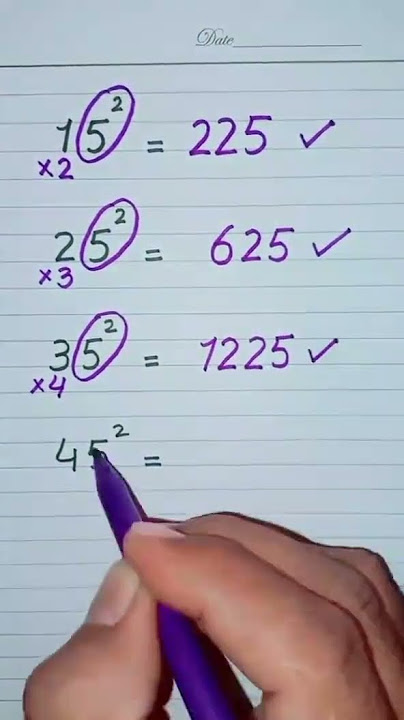 Date
15² = 225 ✓
×2
25² = 625 ✓
×3
35² = 1225 ✓
×4
45² =